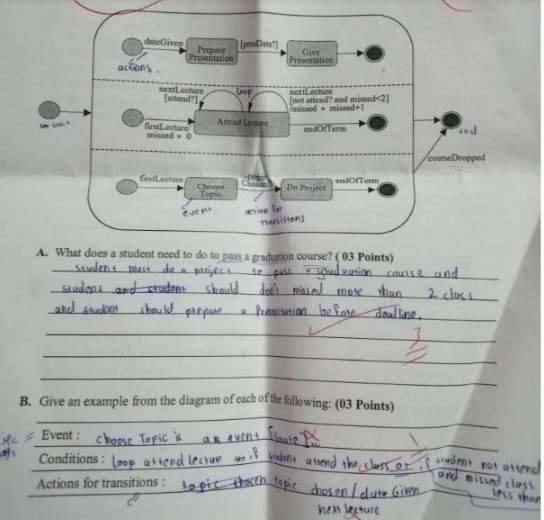 dateGiven
Prepare
Presentation
[presDate?]
Give
Presentation
actions.
nextLecture
[attend?]
loop
nextLecture
[not attend? and missed<2]
/missed = missed+1
Attend Lecture
firstLecture/
missed = 0
endOfTerm
end
courseDropped
firstLecture
Choose
Topic
[topic
Chosen?]
Do Project
endOfTerm
event
action for
transistons
A. What does a student need to do to pass a graduation course? ( 03 Points)
student must do a project to pass a graduation course and
student and student should don't missed more than 2 class
and student should prepare a Presentation before dealine.
3
B. Give an example from the diagram of each of the following: (03 Points)
Event : choose Topic is an event [state]
1
Conditions : loop attend lectur if student attend the class or if student not attend
and missed class
less than
Actions for transitions : topic chosen topic chosen / date Given
next lecture